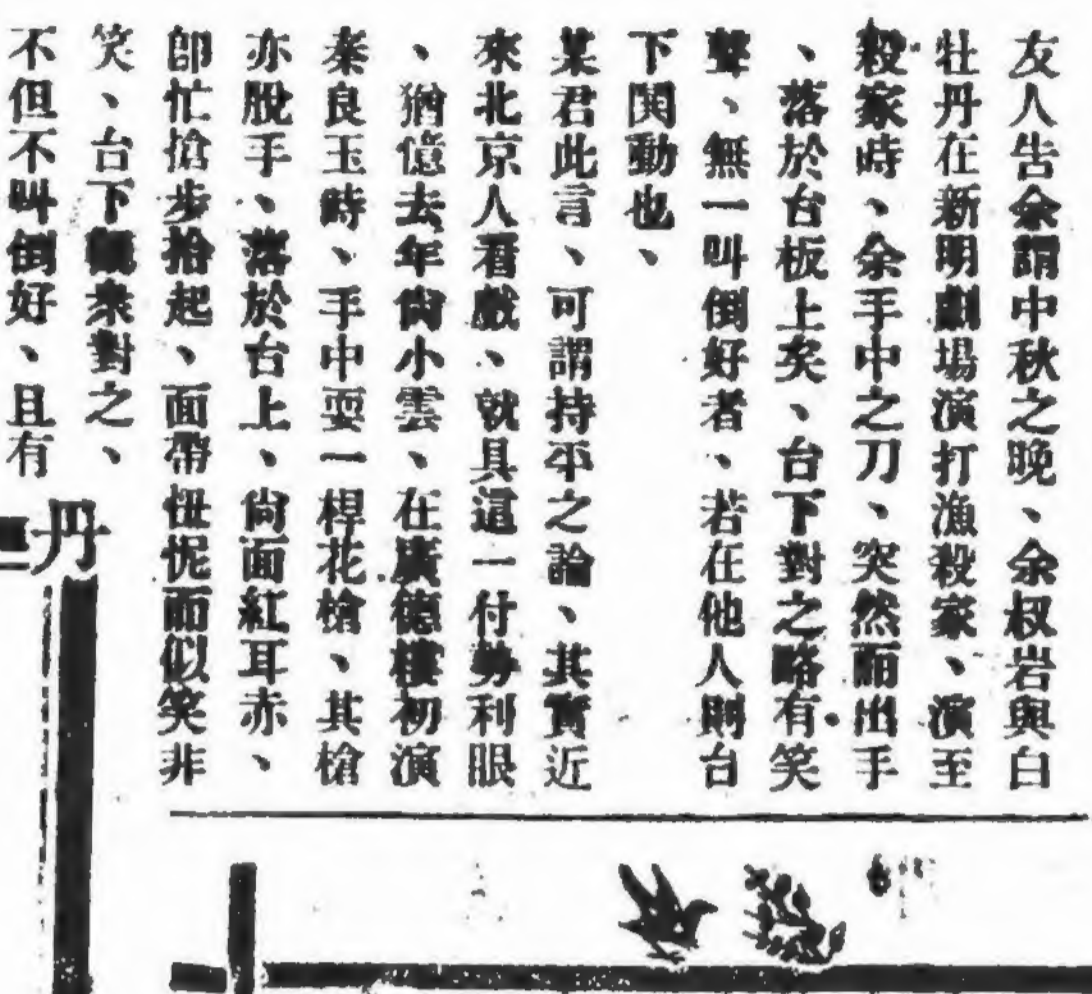 友人告余謂中秋之晚、余叔岩與白
牡丹在新明劇場演打漁殺家、演至
殺家時、余手中之刀、突然而出手
、落於台板上矣、台下對之略有笑
聲、無一叫倒好者、若在他人則台
下閧動也、
某君此言、可謂持平之論、其實近
來北京人看戲、就具這一付勢利眼
、猶憶去年尙小雲、在廣德樓初演
秦良玉時、手中耍一桿花槍、其槍
亦脫手、落於台上、尙面紅耳赤、
卽忙搶步拾起、面帶忸怩而似笑非
笑、台下觀衆對之、
不但不叫倒好、且有
丹